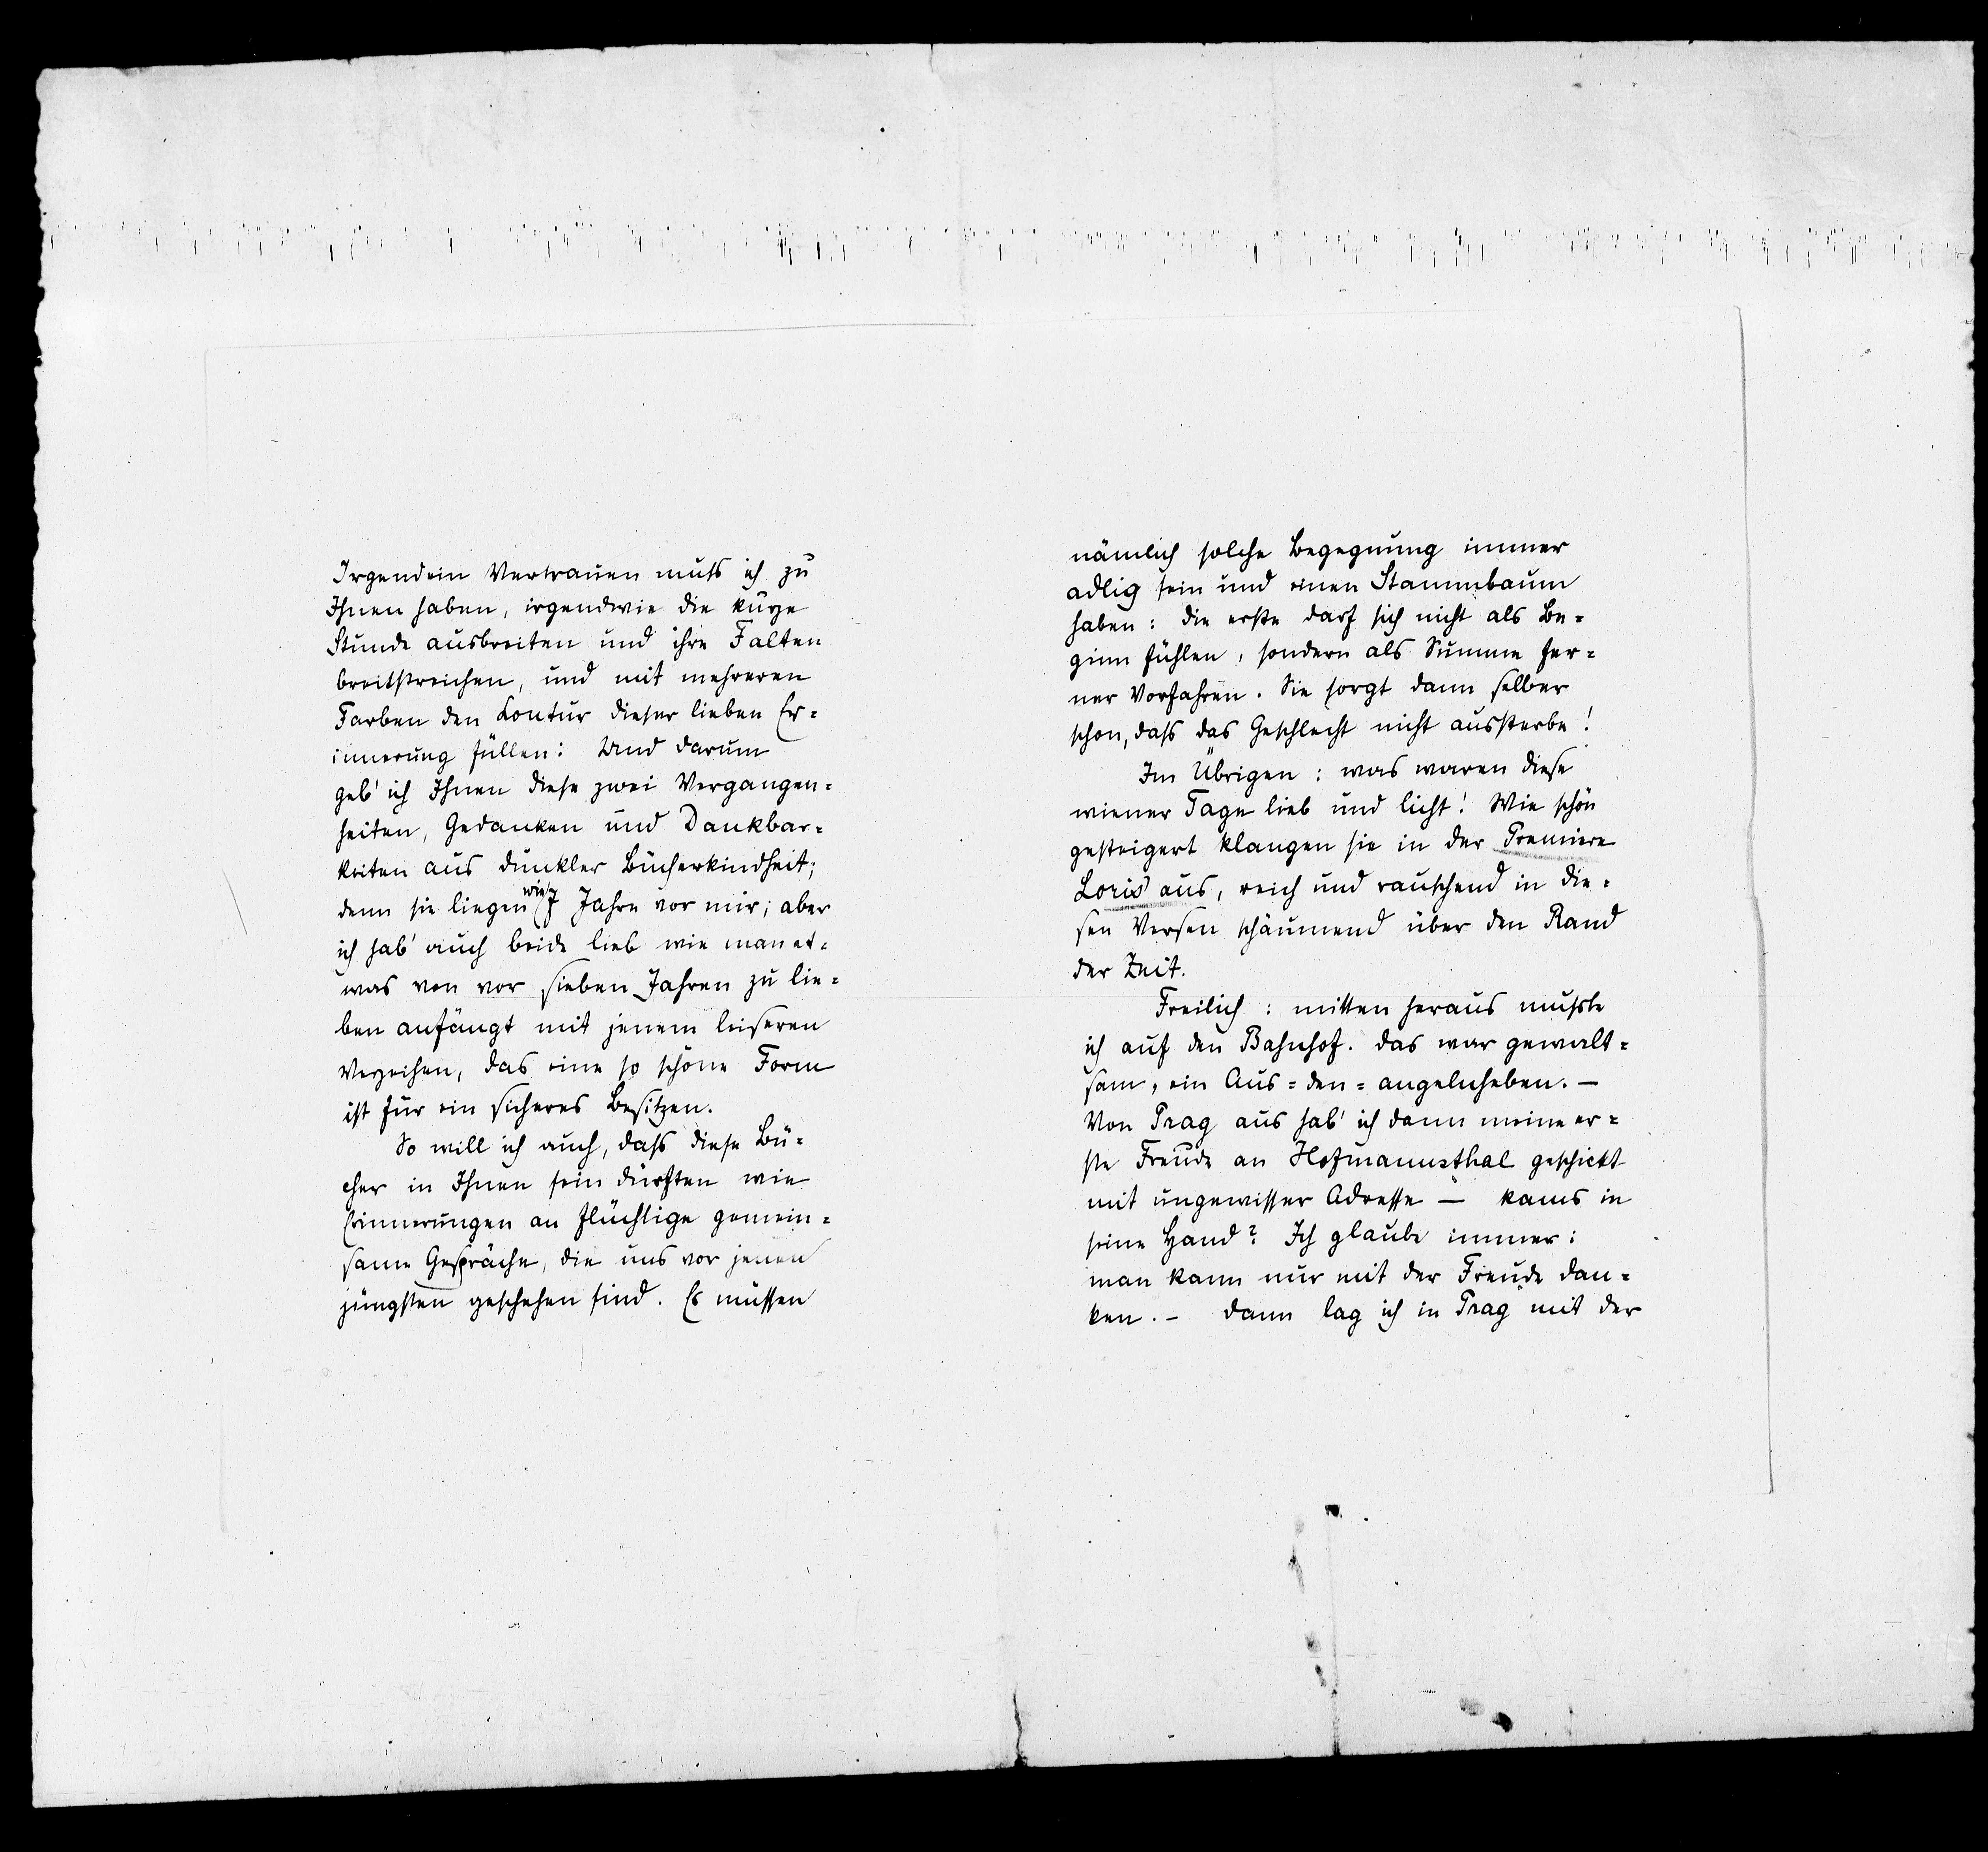 Irgendein Vertrauen muß ich zu
Ihnen haben, irgendwie die kurze
Stunde ausbreiten und ihre Falten
breitstreichen, und mit mehreren
Farben den Kontur dieser lieben Er=
innerung füllen: Und darum
geb' ich Ihnen diese zwei Vergangen=
heiten, Gedanken und Dankbar=
keiten aus dunkler Bücherkindheit;
denn sie liegen wie 7 Jahre vor mir; aber
ich hab' auch beide lieb wie man et=
was von vor sieben Jahren zu lie=
ben anfängt mit jenem leiseren
Verzeihen, das eine so schöne Form
ist für ein sicheres Besitzen.
So will ich auch, daß diese Bü=
cher in Ihnen sein dürften wie
Erinnerungen an flüchtige gemein=
same Gespräche, die uns vor jenen
jüngsten geschehen sind. Es müssen
nämlich solche Begegnung immer
adlig sein und einen Stammbaum
haben: die erste darf sich nicht als Be=
ginn fühlen, sondern als Summe fer=
ner Vorfahren. Sie sorgt dann selber
schon, daß das Geschlecht nicht aussterbe!
Im Übrigen: was waren diese
wiener Tage lieb und licht! Wie schön
gesteigert klangen sie in der Premiere
Loris' aus, reich und rauschend in die=
sen Versen schäumend über den Rand
der Zeit.
Freilich: mitten heraus mußte
ich auf den Bahnhof. das war gewalt=
sam, ein Aus=den=angelnheben. —
Von Prag aus hab' ich dann meine er=
ste Freude an Hofmannsthal geschickt
mit ungewisser Adresse — kams in
seine Hand? Ich glaube immer:
man kann nur mit der Freude dan=
ken. — dann lag ich in Prag mit der